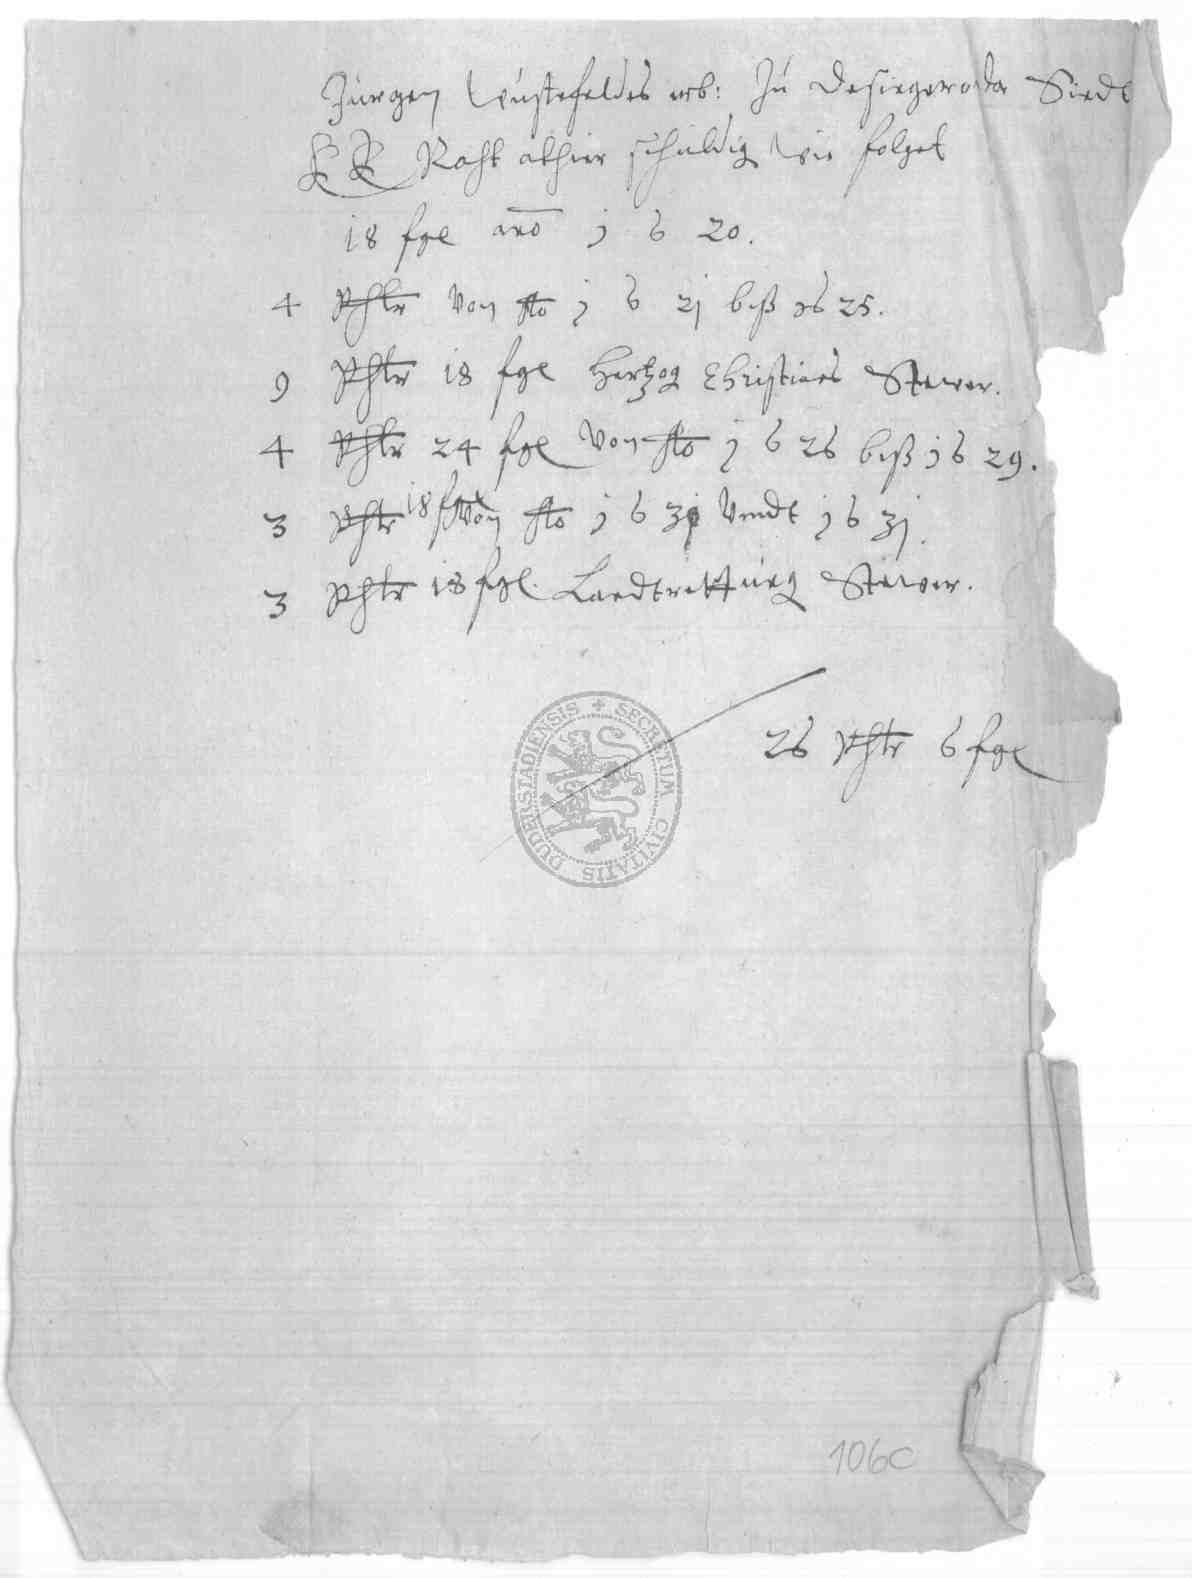 Jürgen Wüstefeldes erb: Zu Desingeroda Sindt
E E Raht alhier schuldig wie folget
18 fgl año j 6 20.
4 Rthlr von ao j 6 2j biß j6 25.
9 Rthlr 18 fgl Hertzog Christians Stewer.
4 Rthlr 24 fgl von ao j 6 26 biß j 6 29.
3 Rthlr 18 fgl von ao j 6 30 undt j 6 3j.
3 Rthlr 18 fgl. Landtrettung Stewer.
26 Rthlr 6 fgl
SECRETUM CIVITATIS DUDERSTADIENSIS
106c